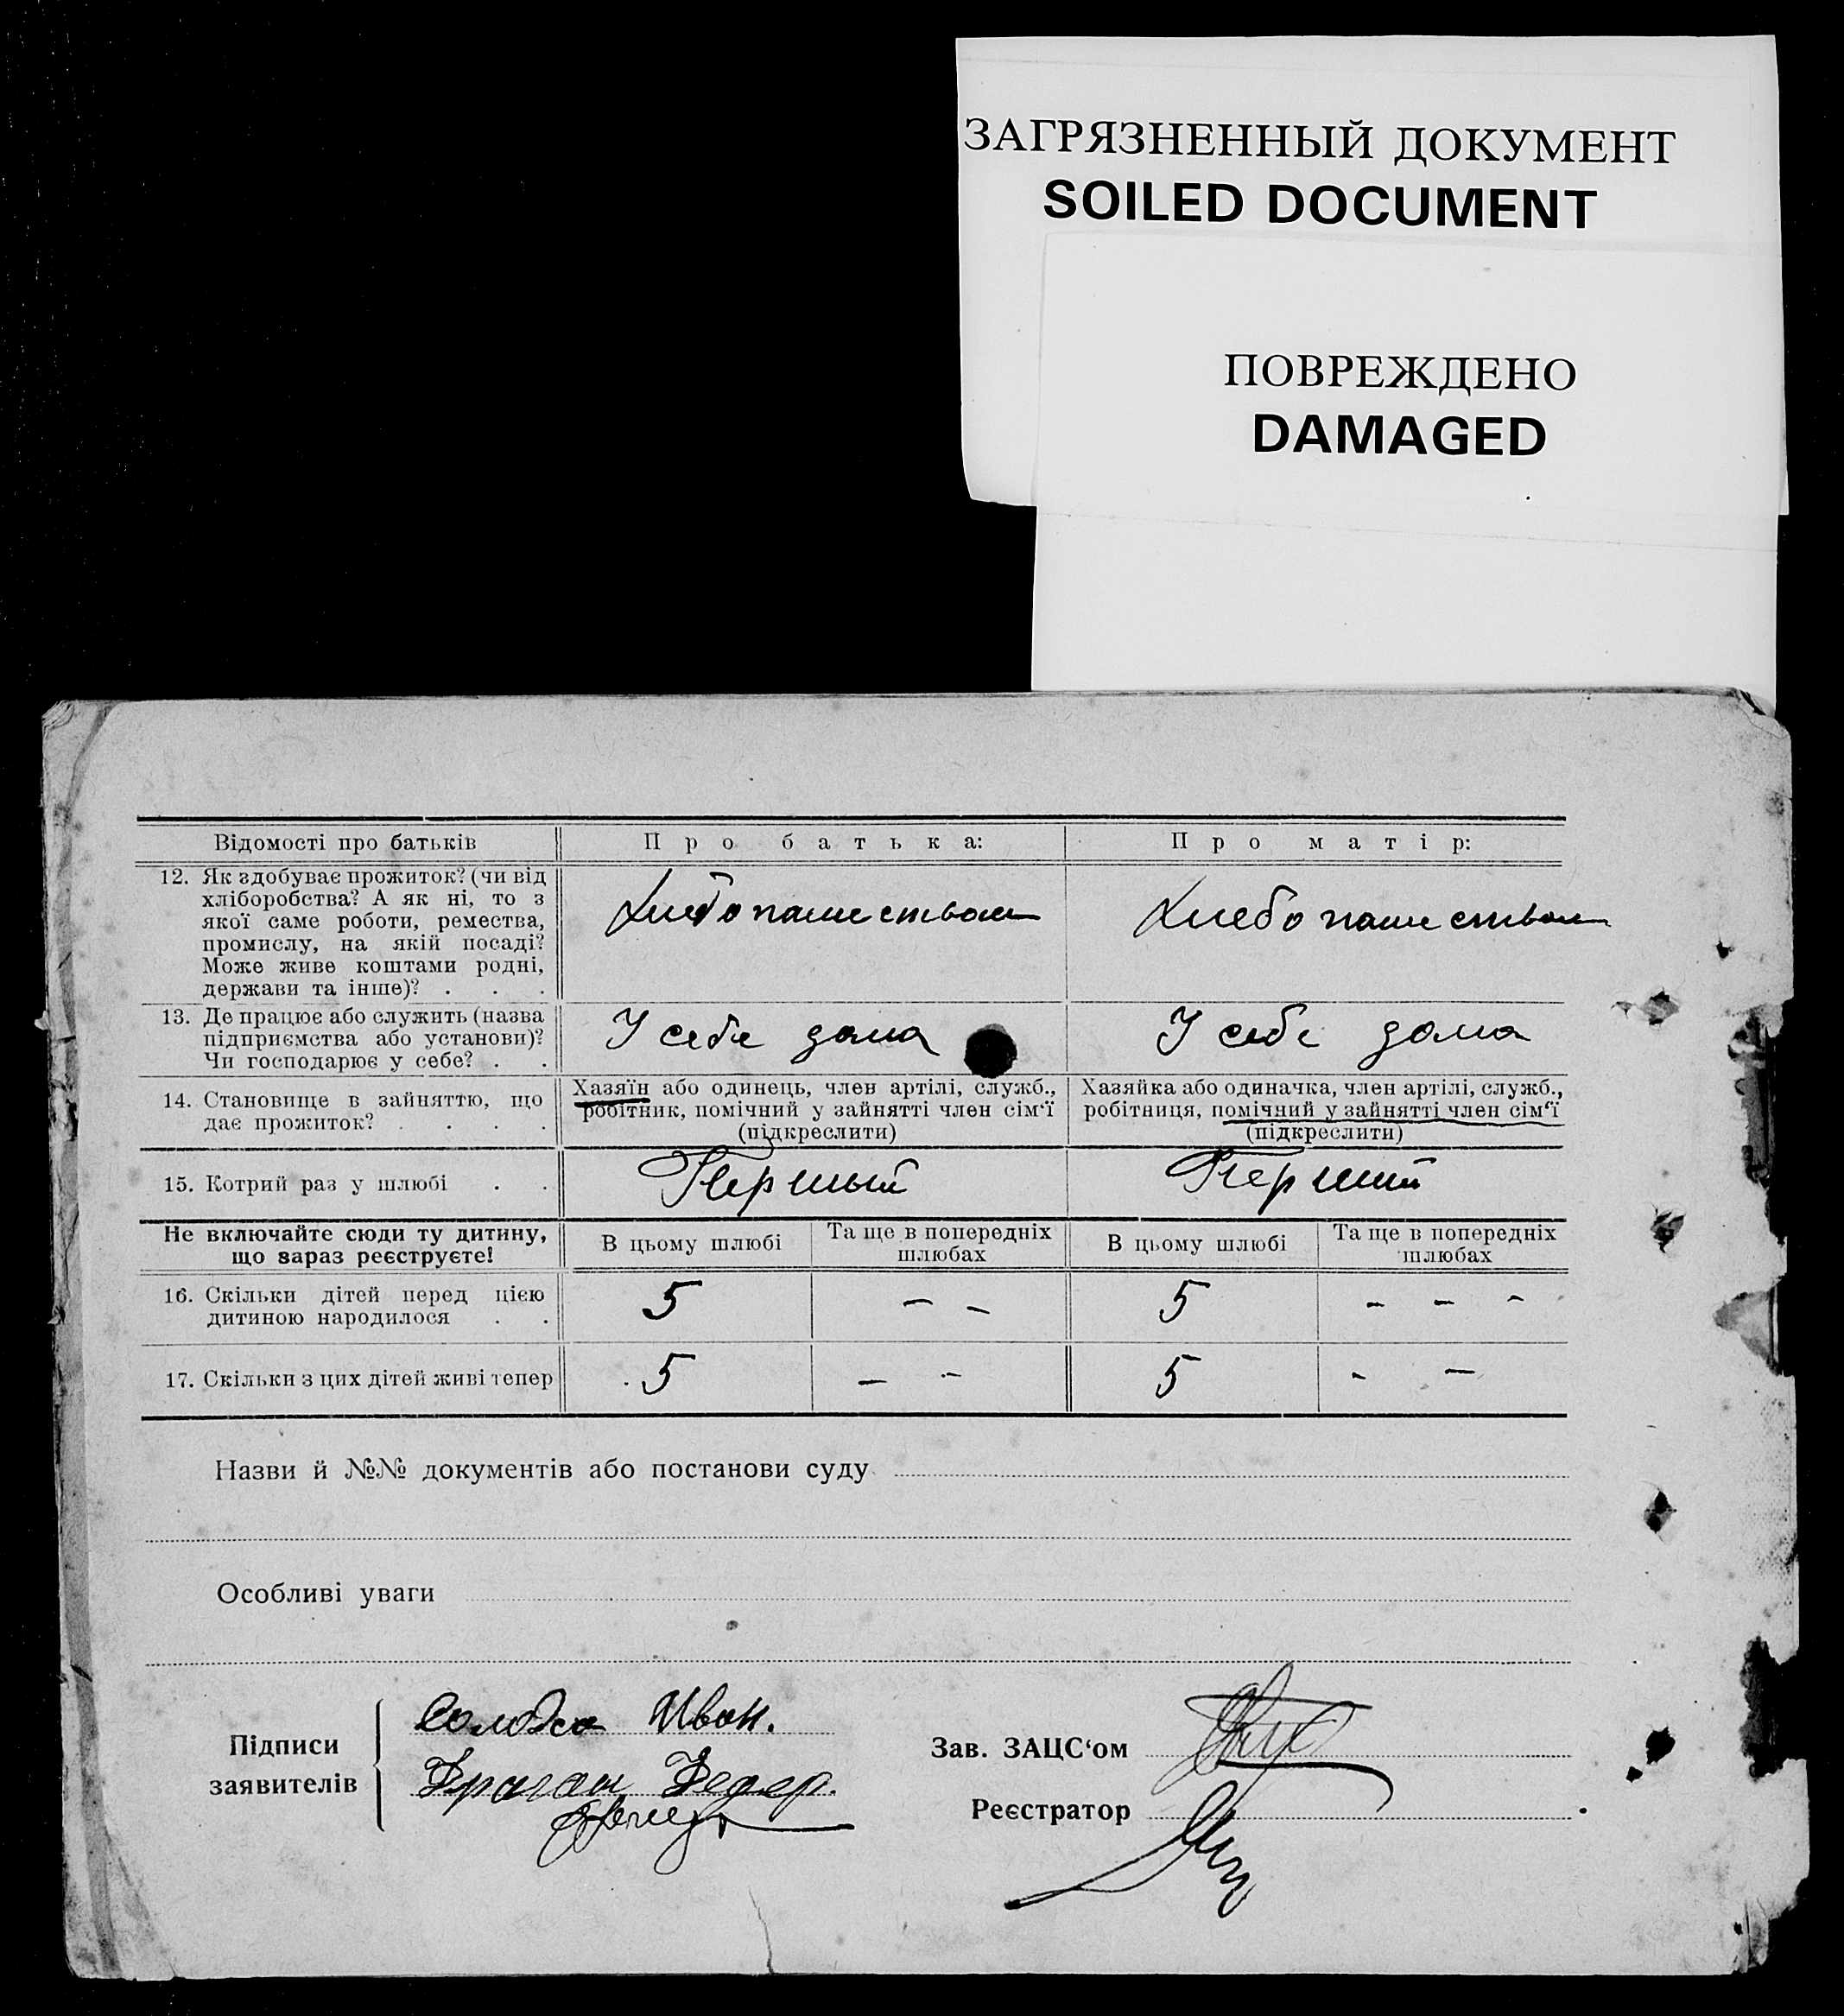 ЗАГРЯЗНЕННЫЙ ДОКУМЕНТ
SOILED DOCUMENT
ПОВРЕЖДЕНО
DAMAGED
Відомості про батьків
Про батька:
Про матір:
12. Як здобуває прожиток? (чи від
хліборобства? А як ні, то з
якої саме роботи, ремества,
промислу, на якій посаді?
Може живе коштами родні,
держави та інше)? . . .
Хлебопашеством
Хлебопашеством
13. Де працює або служить (назва
підприємства або установи)?
Чи господарює у себе? . .
У себе дома
У себе дома
14. Становище в зайняттю, що
дає прожиток? . . . .
Хазяїн або одинець, член артілі, служб.,
робітник, помічний у зайнятті член сім‘ї
(підкреслити)
Хазяйка або одиначка, член артілі, служб.,
робітниця, помічний у зайнятті член сім‘ї
(підкреслити)
15. Котрий раз у шлюбі . .
Першый
Перший
Не включайте сюди ту дитину,
що зараз реєструєте!
В цьому шлюбі
Та ще в попередніх
шлюбах
В цьому шлюбі
Та ще в попередніх
шлюбах
16. Скільки дітей перед цією
дитиною народилося . .
5
– –
5
– – –
17. Скільки з цих дітей живі тепер
5
– –
5
– –
Назви й №№ документів або постанови суду
Особливі уваги
Підписи
заявителів
Иван.
Федер.
Зав. ЗАЦС‘ом
Реєстратор